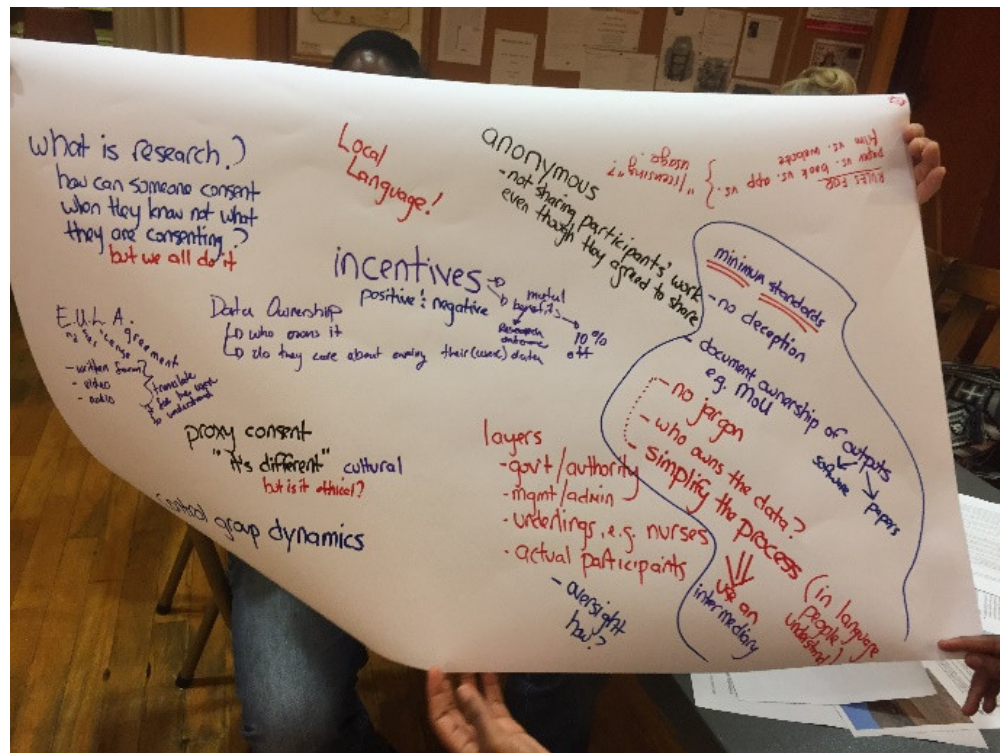 what is research?
how can someone consent
when they know not what
they are consenting?
but we all do it
Local
Language!
anonymous
- not sharing participants' work
even though they agreed to share
"licensing"?
usage.
RULES FOR
paper vs. book vs. app vs.
film vs. website
incentives
positive : negative
mutual
benefits
Research
outcome
10%
off
Data Ownership
who owns it
do they care about owning their (user) data
E.U.L.A.
greement
- written form
- video
- audio
translate
for the user
to understand
proxy consent
"it's different" cultural
but is it ethical?
control group dynamics
layers
- gov't/authority
- mgmt/admin
- underlings, e.g. nurses
- actual participants
- oversight
how?
minimum standards
- no deception
- document ownership of outputs
e.g. MoU
software
papers
- no jargon
- who owns the data?
- simplify the process (in language
people
understand)
use an
intermediary